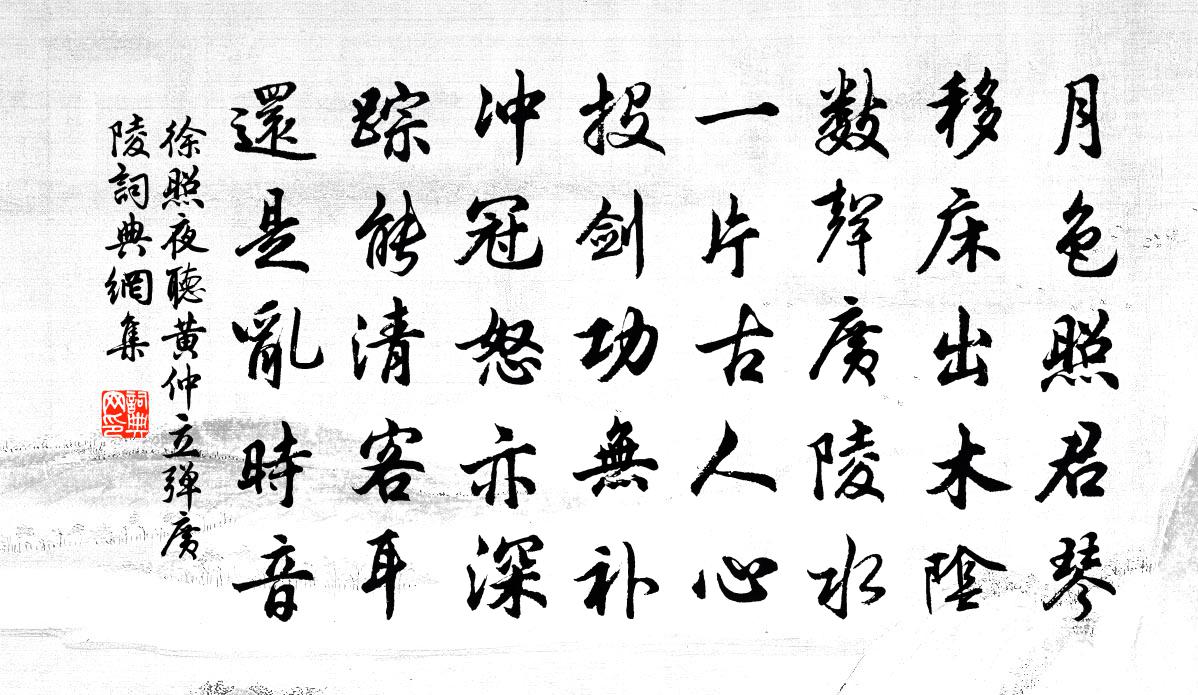 月色照君琴
移床出木陰
数聲廣陵水
一片古人心
投剑功無补
冲冠怒亦深
踪能清客耳
還是亂時音
徐照夜聽黄仲立弹廣
陵詞典網集
詞典網印